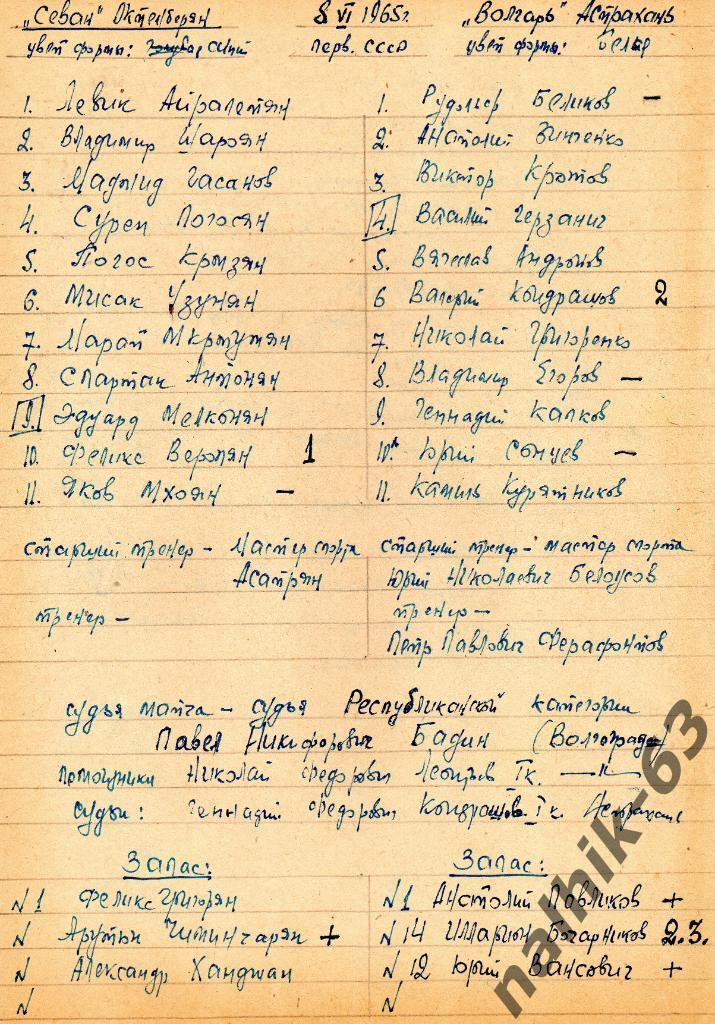 "Севан" Октемберян 8 VI 1965 г. "Волгарь" Астрахань
цвет формы: синий перв. СССР цвет формы: белые
1. Левик Айрапетян
2. Владимир Шароян
3. Маджид Гасанов
4. Сурен Погосян
5. Погос Крмзян
6. Мисак Узунян
7. Марат Мкртумян
8. Спартак Антонян
9. Эдуард Мелконян
10. Феликс Веронян 1
11. Яков Мхоян –
1. Рудольф Беликов –
2. Анатолий Зинченко
3. Виктор Кротов
4. Василий Герзанич
5. Вячеслав Андронов
6 Валерий Кондрашов 2
7. Николай Григоренко
8. Владимир Егоров –
9. Геннадий Калков
10. Юрий Сонцев –
11. Камиль Курятников
старший тренер – Мастер спорта
Асатрян
тренер –
старший тренер – мастер спорта
Юрий Николаевич Белоусов
тренер –
Петр Павлович Ферафонтов
судья матча – судья Республиканской категории
Павел Никифорович Бадин (Волгоград)
помощники Николай Федорович Леонтьев I к. —"—
судьи: Геннадий Федорович Кондрашов I к. Астрахань
Запас:
N 1 Феликс Григорян
N Арутюн Чимингарян +
N Александр Ханджян
N
Запас:
N 1 Анатолий Павликов +
N 14 Илларион Бочарников 2.3.
N 12 Юрий Вансович +
N
nathik-63